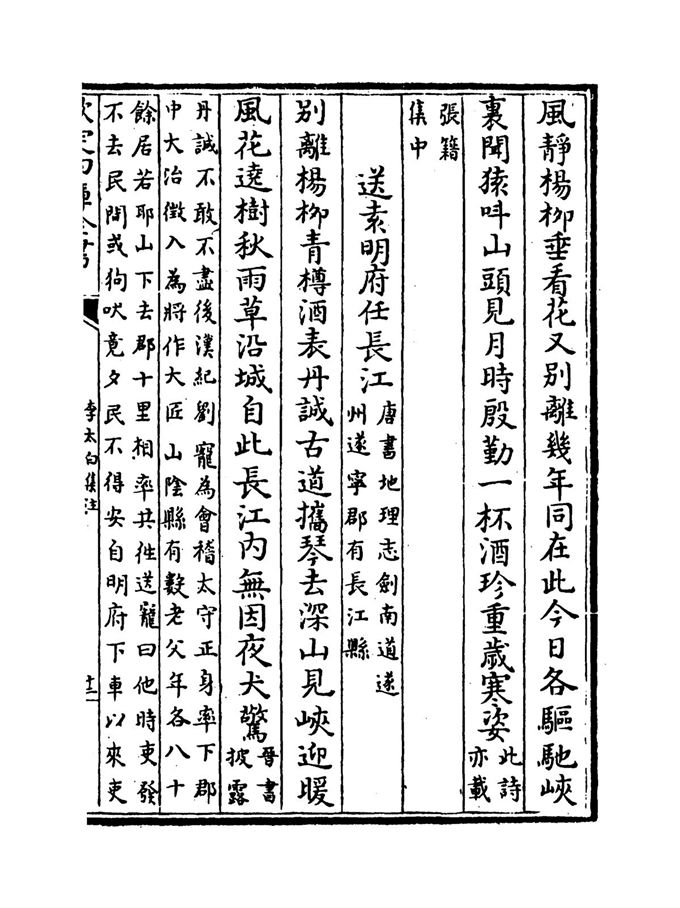 風靜楊柳垂看花又别離幾年同在此今日各驅馳峽
裏聞猿呌山頭見月時殷勤一杯酒珍重歲寒姿此詩
亦載
張籍
集中
送袁明府任長江唐書地理志劍南道遂
州遂寧郡有長江縣
别離楊柳青樽酒表丹誠古道攜琴去深山見峽迎暖
風花遶樹秋雨草沿城自此長江内無因夜犬驚晉書
披露
丹誠不敢不盡後漢紀劉寵為會稽太守正身率下郡
中大治徵入為將作大匠山陰縣有數老父年各八十
餘居若耶山下去郡十里相率共徃送寵曰他時吏發
不去民間或狗吠竟夕民不得安自明府下車以來吏
欽定四庫全書
李太白集注